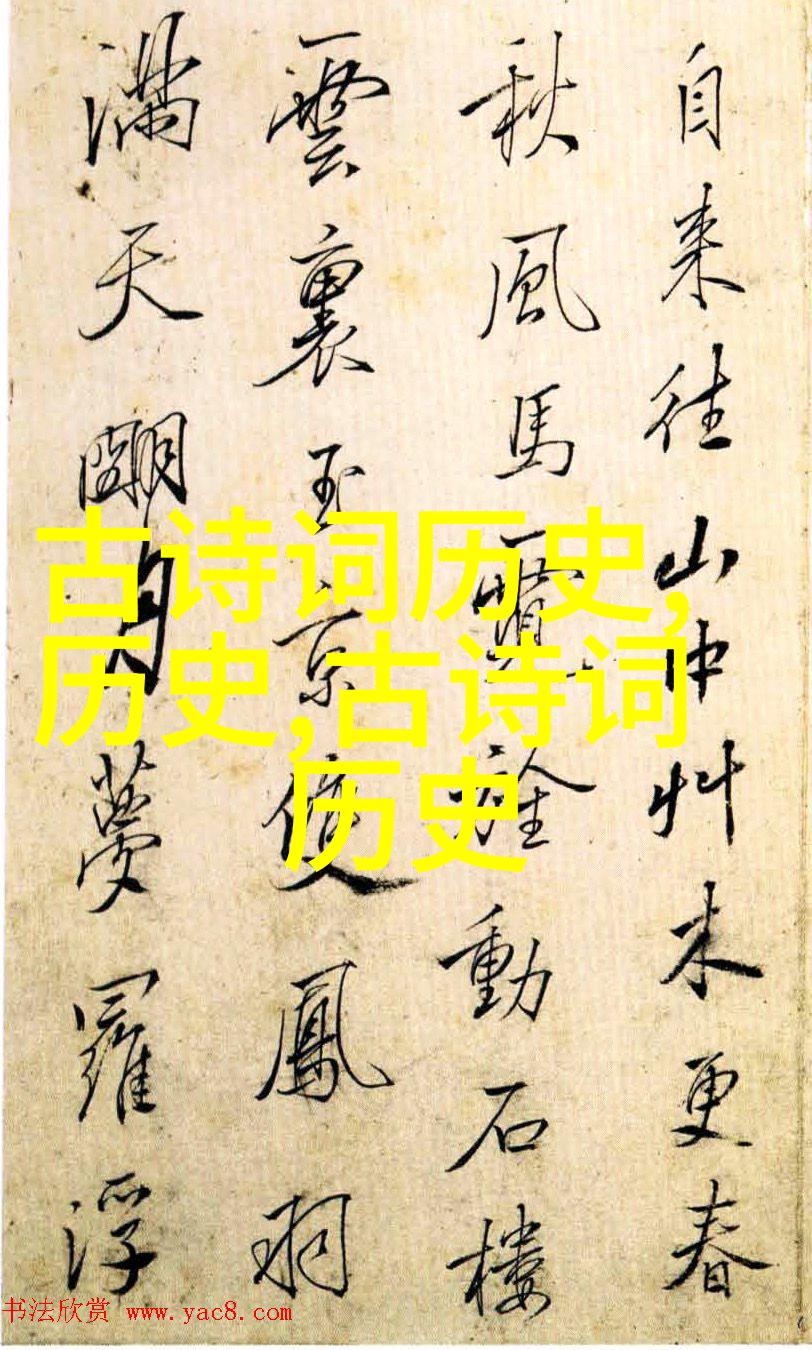 自来往山中艸木更春
秋風馬㬎旌動石樓
雲裏玉京雙鳳羽
满天朙月夢羅浮
古诗词历史,
历史,古诗词
历史
书法欣赏 www.yac8.com